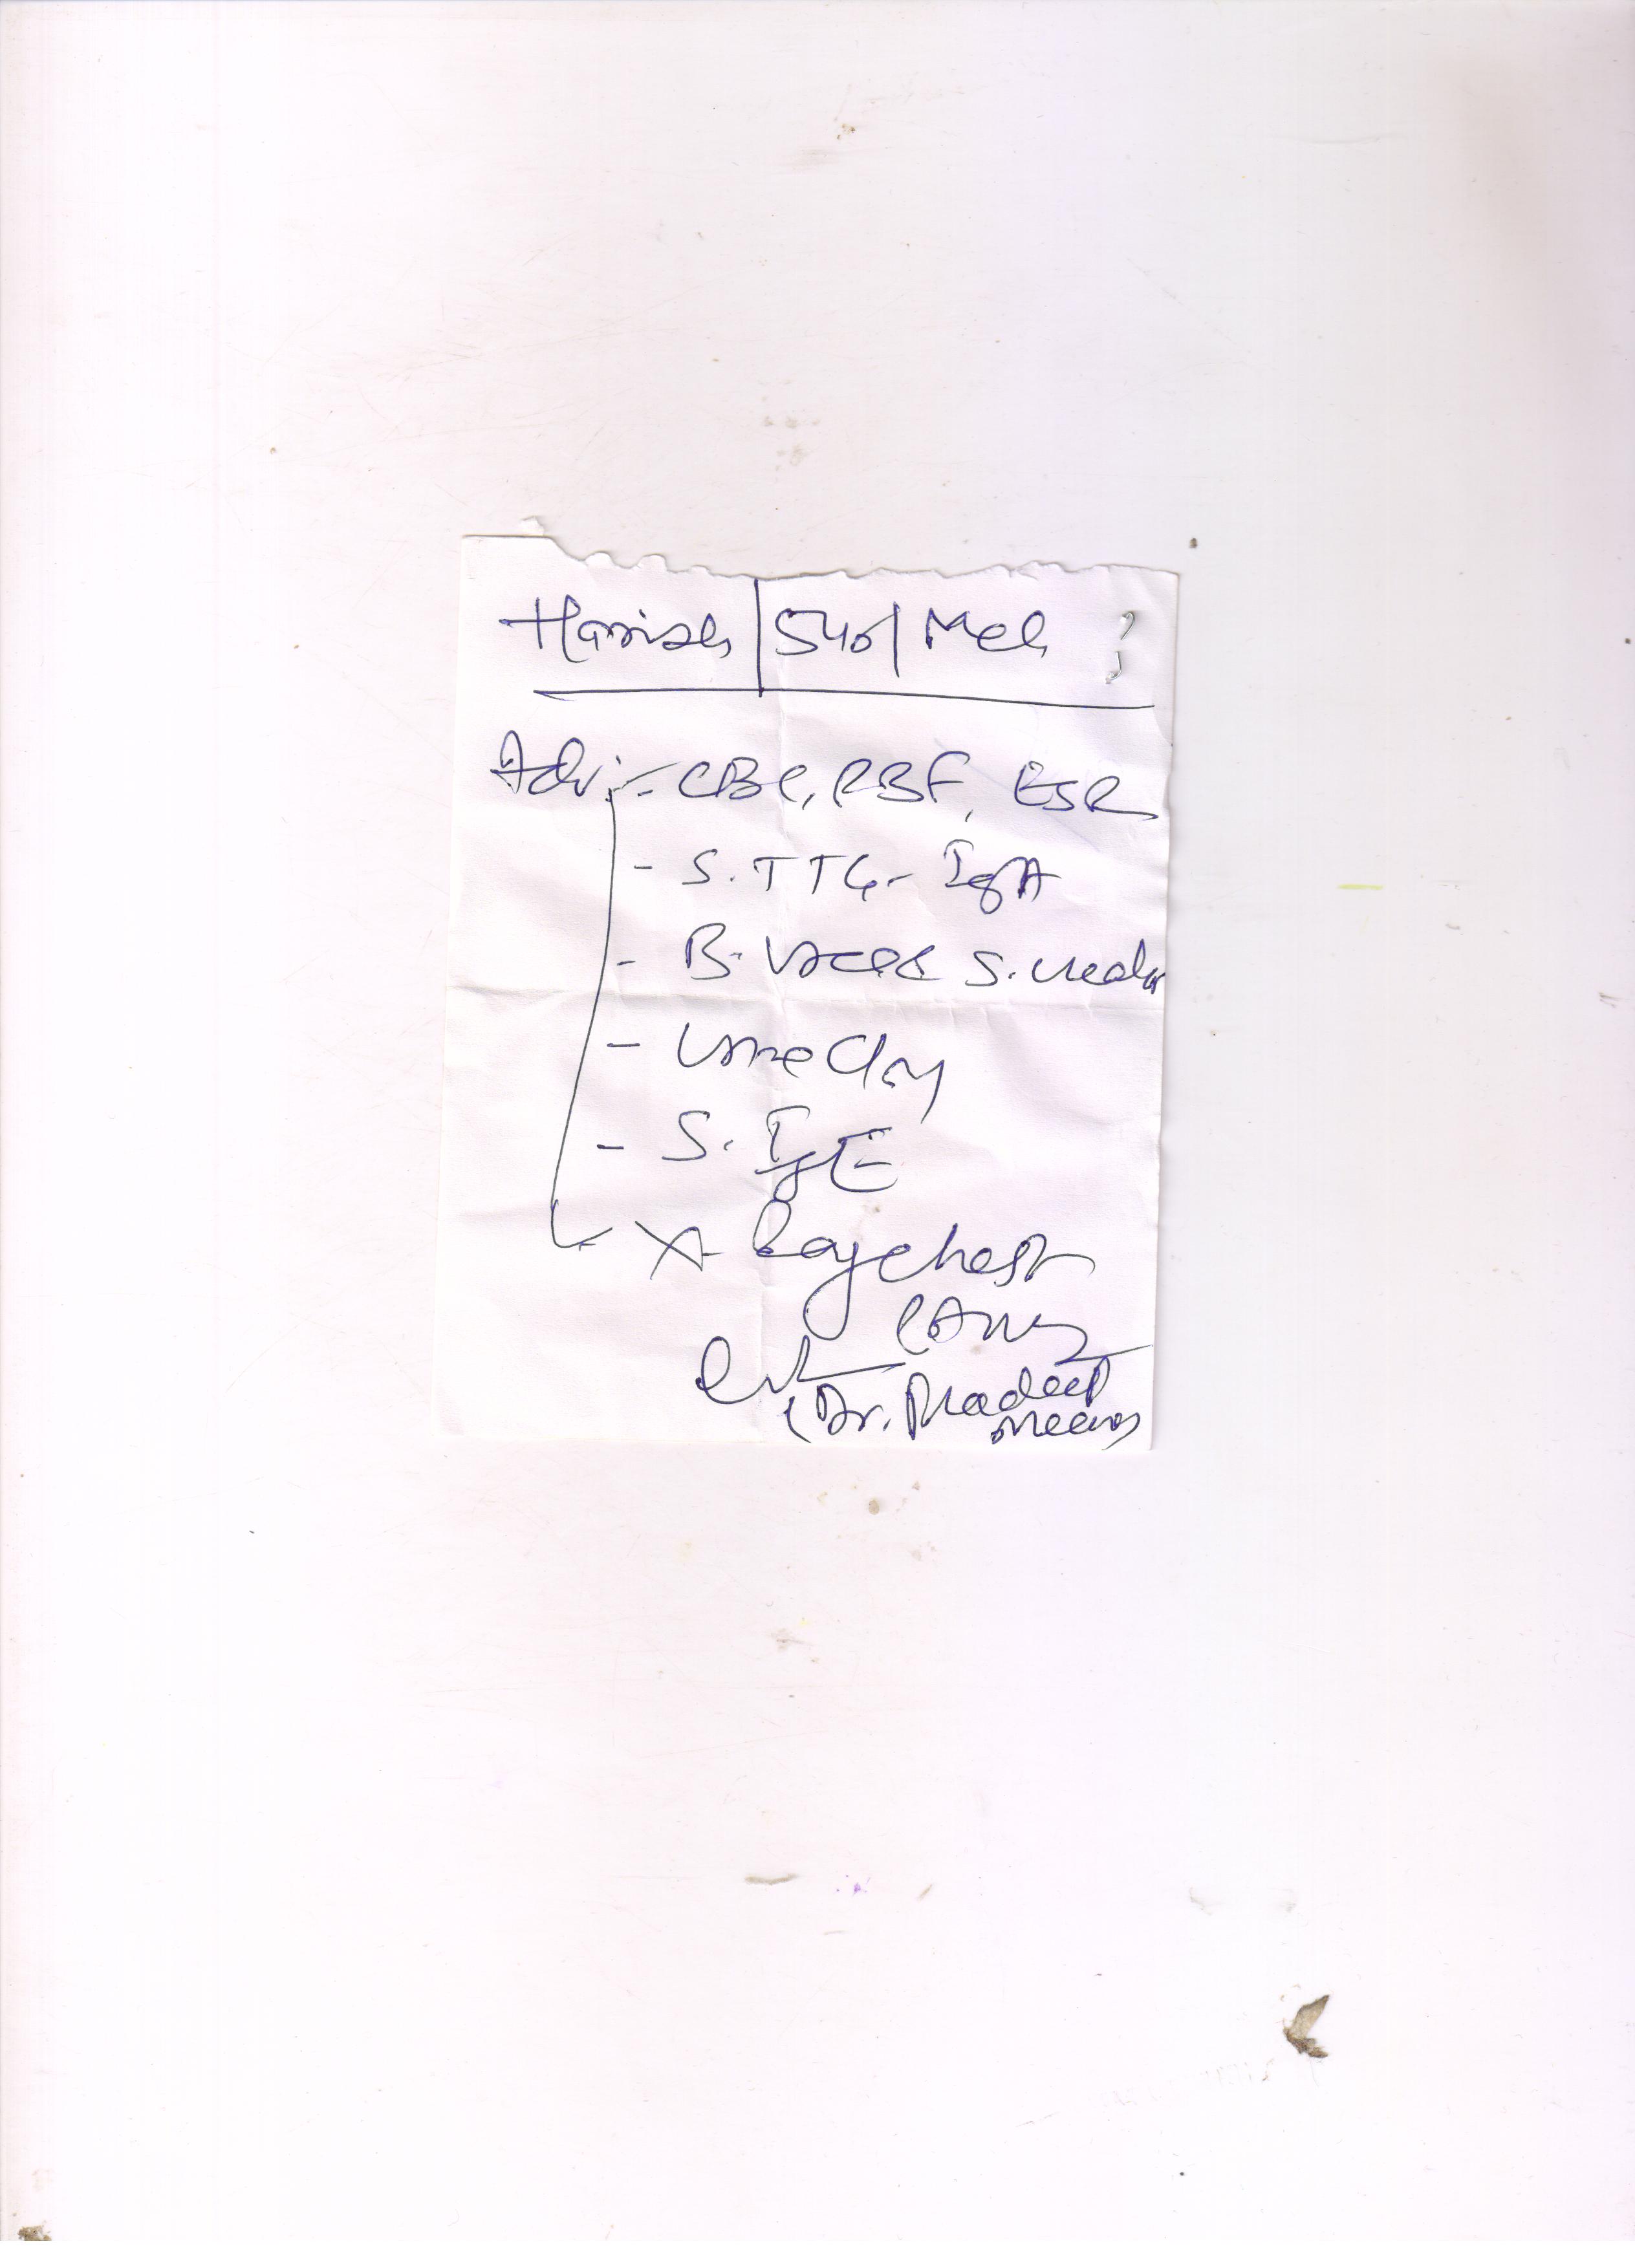 Harish | 5yo | Mch
Adv:- CBC, PBF, ESR
- S. TTG- IgA
- B. Urea & S. Creatin
- Urine C/M
- S. IgE
X- Ray chest
(Dr. Pradeep
Meena)